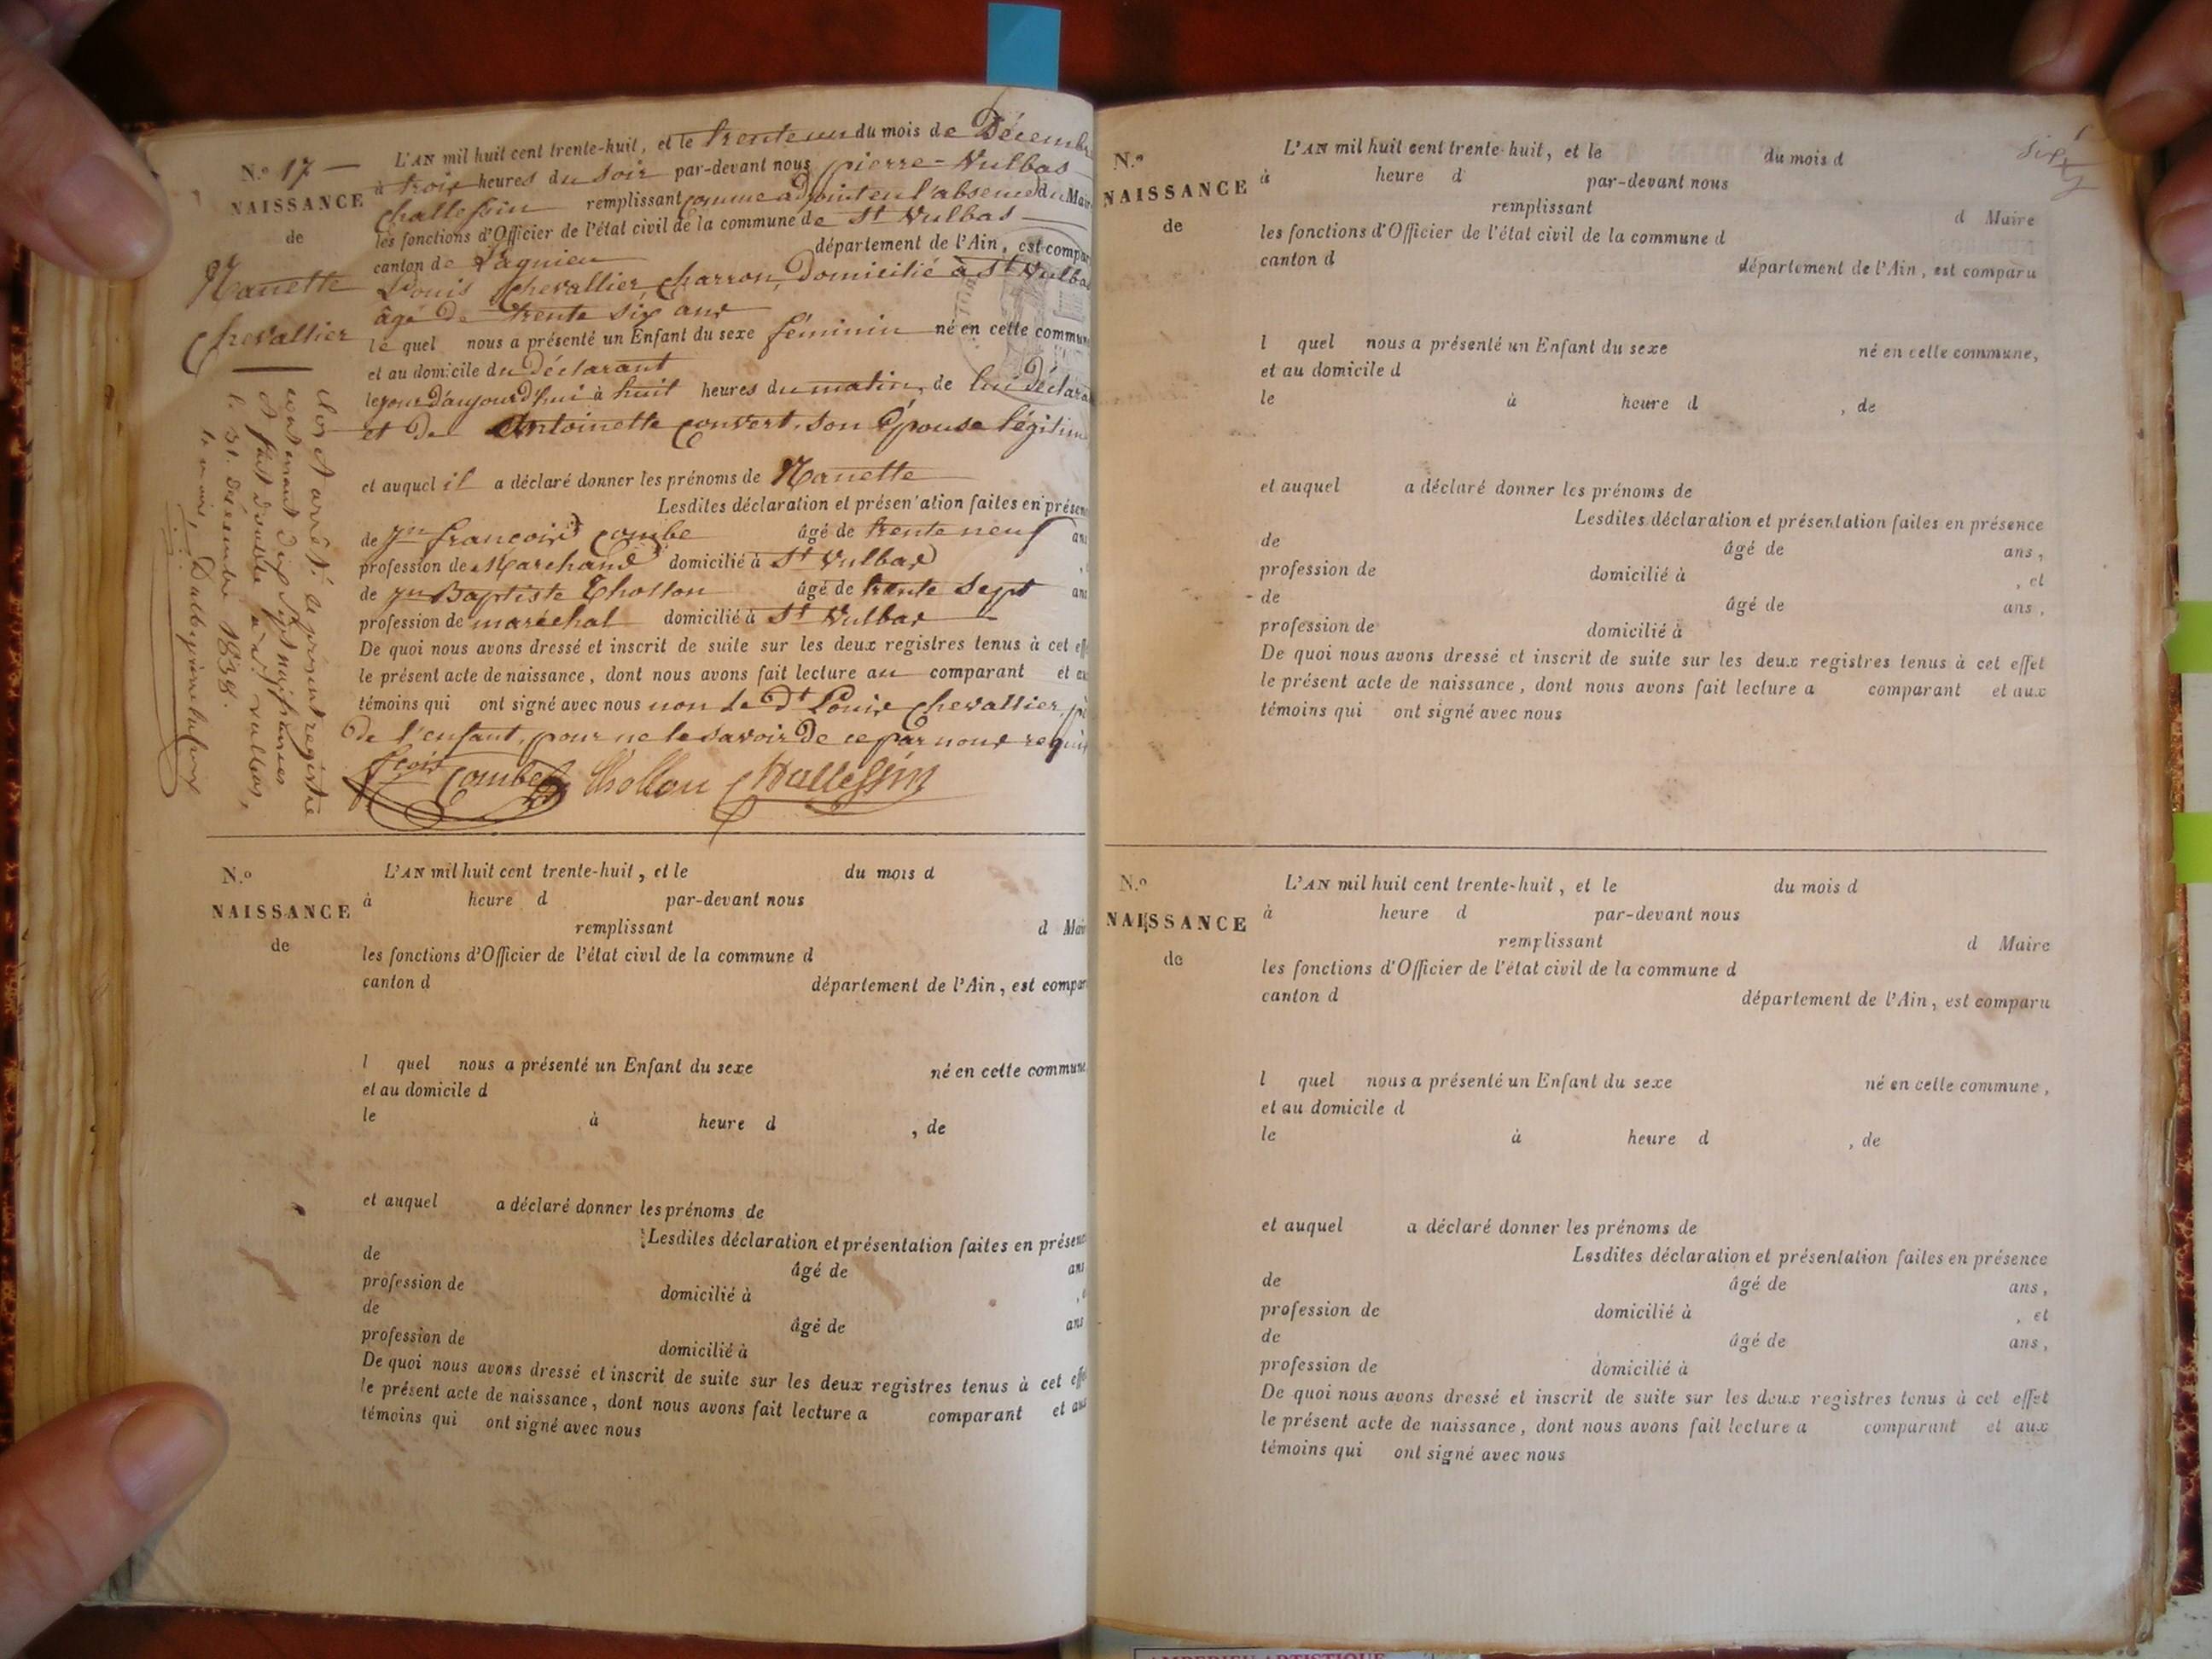 N.º 17 —
NAISSANCE
de
Nanette
Chevallier
L'AN mil huit cent trente-huit, et le trente un du mois de Décembre
à trois heures du soir par-devant nous pierre-Vulbas
Challessin remplissant comme adjoint en l'absence du Maire
les fonctions d'Officier de l'état civil de la commune de St Vulbas
canton de Lagnieu département de l'Ain, est comparu
Louis Chevallier, Charron, Domicilié à St Vulbas
âgé de trente six ans
le quel nous a présenté un Enfant du sexe féminin né en cette commune
et au domicile du déclarant
le jour d'aujourd'hui à huit heures du matin, de lui Déclarant
et de Antoinette Convert, son Épouse légitime
et auquel il a déclaré donner les prénoms de Nanette
Lesdites déclaration et présen'ation faites en présence
de jn françois Combe âgé de trente neuf ans
profession de Marchand domicilié à St Vulbas
de jn Baptiste Chollon âgé de trente sept ans
profession de maréchal domicilié à St Vulbas
De quoi nous avons dressé et inscrit de suite sur les deux registres tenus à cet effet
le présent acte de naissance, dont nous avons fait lecture au comparant et aux
témoins qui ont signé avec nous non le Dt Louis Chevallier, père
De l'enfant, pour ne le savoir De ce par nous requis
fçois Combe Chollon Challessin
Clos et arrêté le présent registre
contenant dix sept naissances
et fait double à St Vulbas,
le 31. décembre 1838.
le maire,
N.º
NAISSANCE
de
L'AN mil huit cent trente-huit, et le du mois d
à heure d par-devant nous
remplissant d Maire
les fonctions d'Officier de l'état civil de la commune d
canton d département de l'Ain, est comparu
l quel nous a présenté un Enfant du sexe né en cette commune
et au domicile d
le à heure d , de
et auquel a déclaré donner les prénoms de
Lesdites déclaration et présentation faites en présence
de âgé de ans
profession de domicilié à
de âgé de ans
profession de domicilié à
De quoi nous avons dressé et inscrit de suite sur les deux registres tenus à cet effet
le présent acte de naissance, dont nous avons fait lecture a comparant et aux
témoins qui ont signé avec nous
six
N.º
NAISSANCE
de
L'AN mil huit cent trente-huit, et le du mois d
à heure d par-devant nous
remplissant d Maire
les fonctions d'Officier de l'état civil de la commune d
canton d département de l'Ain, est comparu
l quel nous a présenté un Enfant du sexe né en cette commune,
et au domicile d
le à heure d , de
et auquel a déclaré donner les prénoms de
Lesdites déclaration et présentation faites en présence
de âgé de ans,
profession de domicilié à , et
de âgé de ans,
profession de domicilié à
De quoi nous avons dressé et inscrit de suite sur les deux registres tenus à cet effet
le présent acte de naissance, dont nous avons fait lecture a comparant et aux
témoins qui ont signé avec nous
N.º
NAISSANCE
de
L'AN mil huit cent trente-huit, et le du mois d
à heure d par-devant nous
remplissant d Maire
les fonctions d'Officier de l'état civil de la commune d
canton d département de l'Ain, est comparu
l quel nous a présenté un Enfant du sexe né en cette commune,
et au domicile d
le à heure d , de
et auquel a déclaré donner les prénoms de
Lesdites déclaration et présentation faites en présence
de âgé de ans,
profession de domicilié à , et
de âgé de ans,
profession de domicilié à
De quoi nous avons dressé et inscrit de suite sur les deux registres tenus à cet effet
le présent acte de naissance, dont nous avons fait lecture a comparant et aux
témoins qui ont signé avec nous